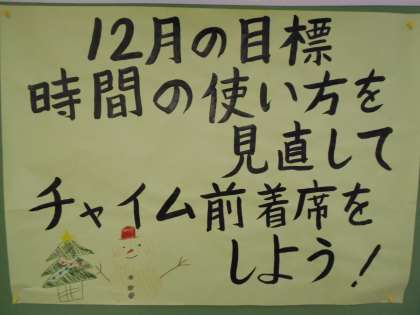 12月の目標
時間の使い方を
見直して
チャイム前着席を
しよう！